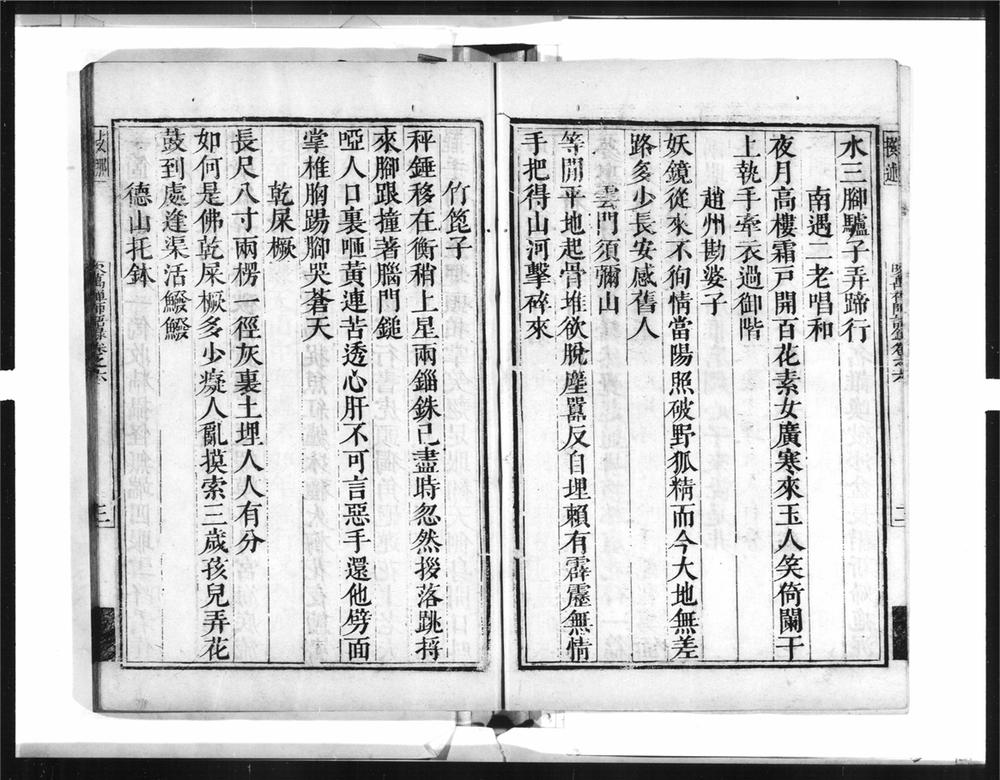 水三腳驢子弄蹄行
南遇二老唱和
夜月高樓霜戸開百花素女廣寒來玉人笑倚闌干
上執手牽衣過御階
趙州勘婆子
妖鏡從來不徇情當陽照破野狐精而今大地無差
路多少長安感舊人
雲門須彌山
等閒平地起骨堆欲脫塵囂反自埋賴有霹靂無情
手把得山河擊碎來
竹篦子
秤錘移在衡稍上星兩錙銖已盡時忽然拶落跳捋
來腳跟撞著腦門鎚
啞人口裏咂黃連苦透心肝不可言惡手還他劈面
掌椎胸踢腳哭蒼天
乾屎橛
長尺八寸兩楞一徑灰裏土埋人人有分
如何是佛乾屎橛多少癡人亂摸索三歲孩兒弄花
鼓到處逢渠活鱍鱍
德山托鉢